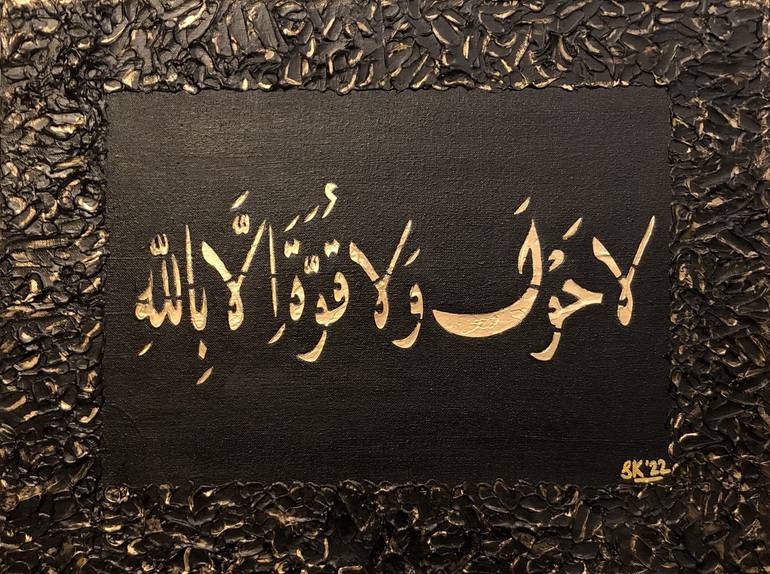 لَا حَوْلَ وَلَا قُوَّةَ اِلَّا بِاللّٰهِ
BK'22